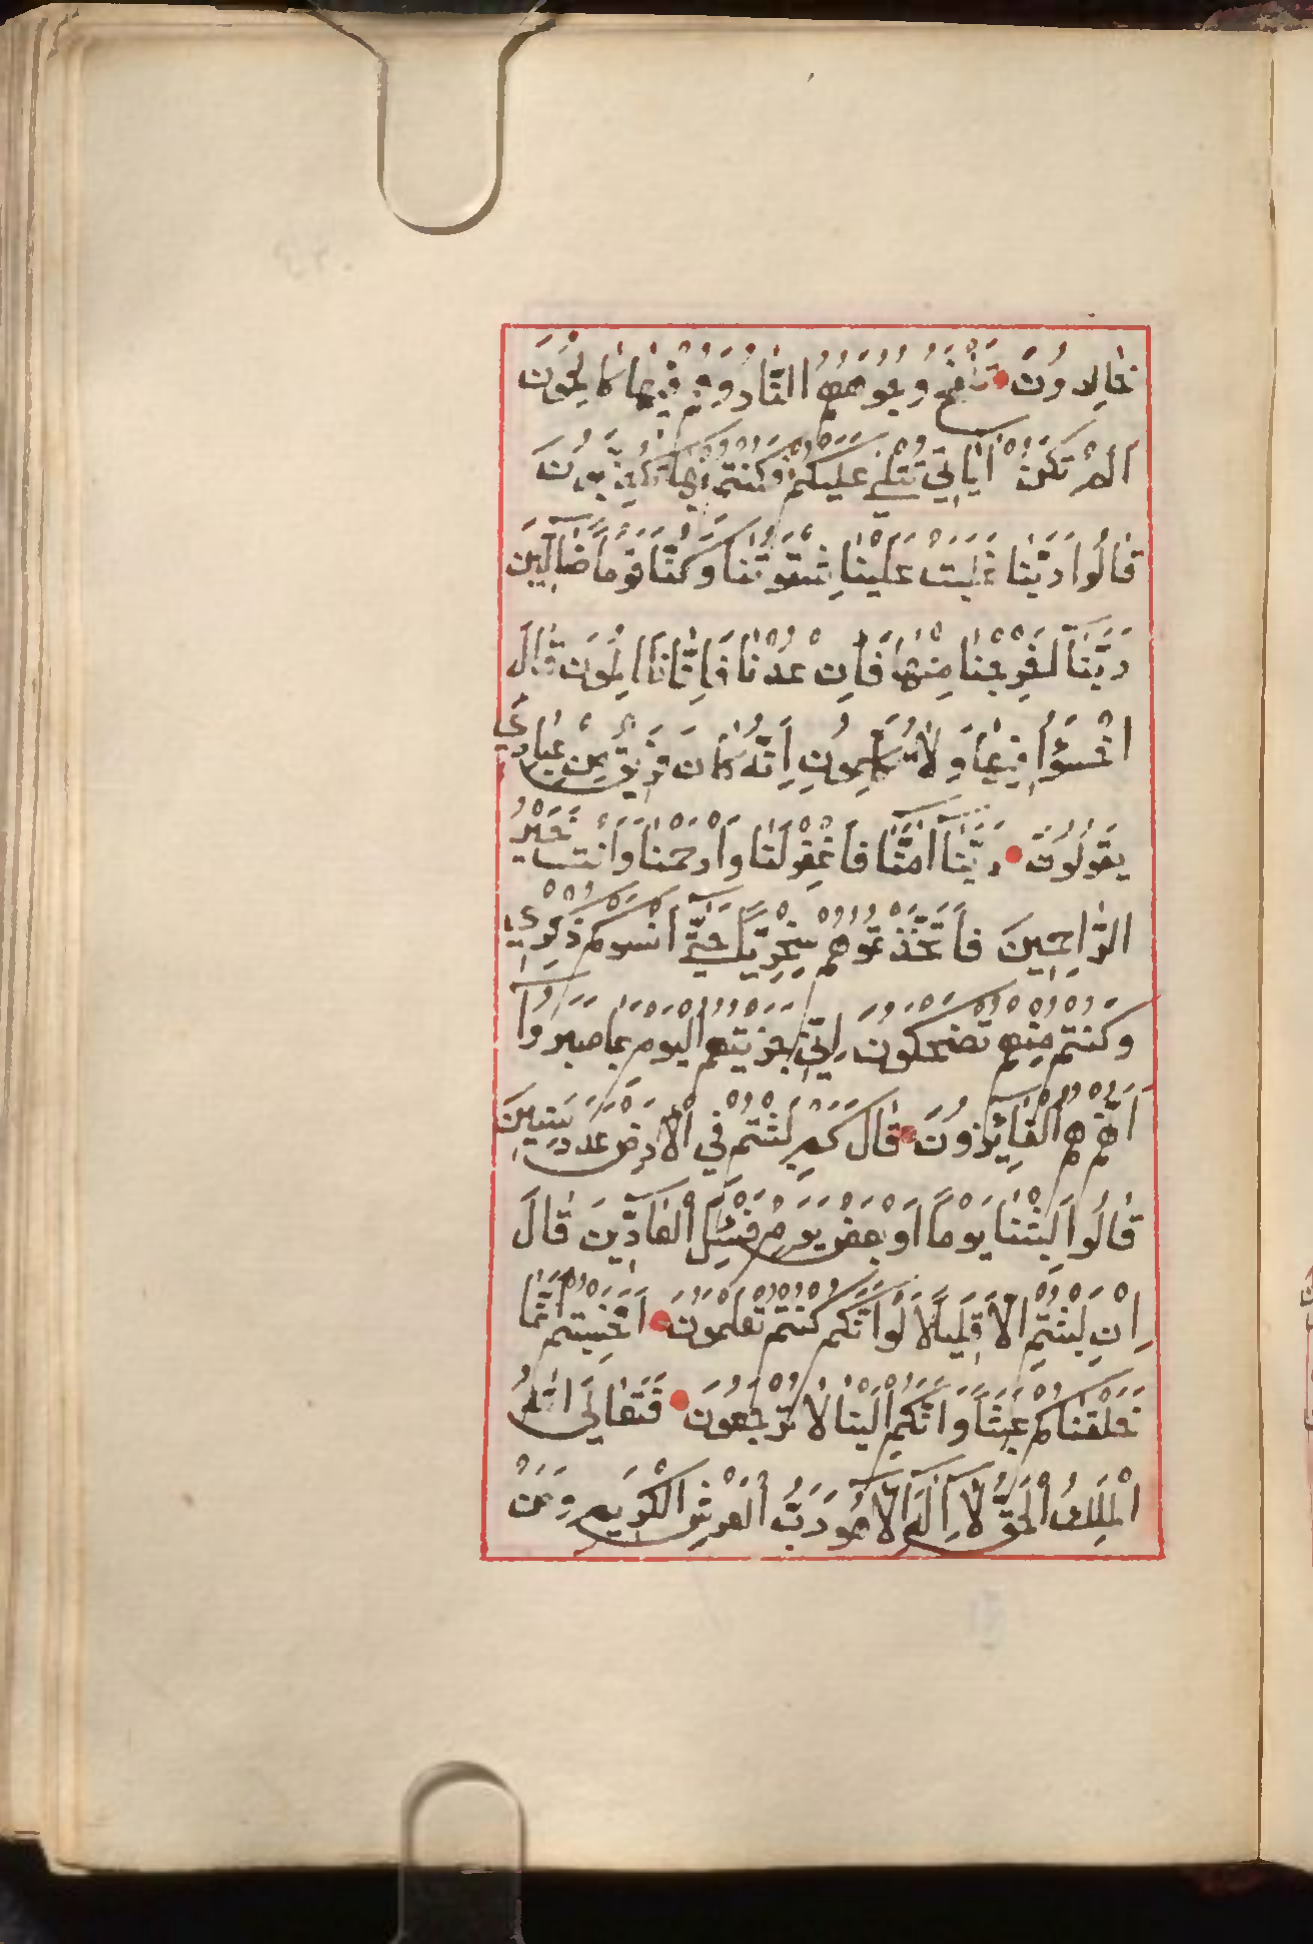 خَالِدُونَ تَلْفَحُ وُجُوهَهُمُ النَّارُ وَهُمْ فِيهَا كَالِحُونَ
اَلَمْ تَكُنْ اٰيَاتِي تُتْلٰى عَلَيْكُمْ فَكُنْتُمْ بِهَا تُكَذِّبُونَ
قَالُوا رَبَّنَا غَلَبَتْ عَلَيْنَا شِقْوَتُنَا وَكُنَّا قَوْمًا ضَآلِّينَ
رَبَّنَآ اَخْرِجْنَا مِنْهَا فَاِنْ عُدْنَا فَاِنَّا ظَالِمُونَ قَالَ
اخْسَؤُا فِيهَا وَلَا تُكَلِّمُونِ اِنَّهُ كَانَ فَرِيقٌ مِنْ عِبَادِي
يَقُولُونَ رَبَّنَآ اٰمَنَّا فَاغْفِرْ لَنَا وَارْحَمْنَا وَاَنْتَ خَيْرُ
الرَّاحِمِينَ فَاتَّخَذْتُمُوهُمْ سِخْرِيًّا حَتّٰى اَنْسَوْكُمْ ذِكْرِي
وَكُنْتُمْ مِنْهُمْ تَضْحَكُونَ اِنِّي جَزَيْتُهُمُ الْيَوْمَ بِمَا صَبَرُوآ
اَنَّهُمْ هُمُ الْفَآئِزُونَ قَالَ كَمْ لَبِثْتُمْ فِي الْاَرْضِ عَدَدَ سِنِينَ
قَالُوا لَبِثْنَا يَوْمًا اَوْ بَعْضَ يَوْمٍ فَسْئَلِ الْعَآدِّينَ قَالَ
اِنْ لَبِثْتُمْ اِلَّا قَلِيلًا لَوْ اَنَّكُمْ كُنْتُمْ تَعْلَمُونَ اَفَحَسِبْتُمْ اَنَّمَا
خَلَقْنَاكُمْ عَبَثًا وَاَنَّكُمْ اِلَيْنَا لَا تُرْجَعُونَ فَتَعَالَى اللّٰهُ
الْمَلِكُ الْحَقُّ لَآ اِلٰهَ اِلَّا هُوَ رَبُّ الْعَرْشِ الْكَرِيمِ وَمَنْ